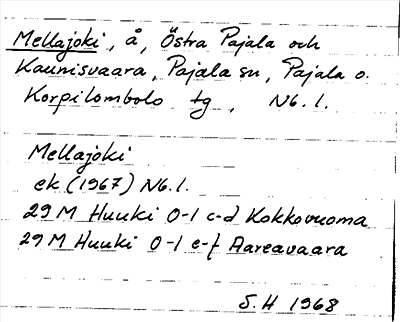 Mellajoki, å, Östra Pajala och
Kaunisvaara, Pajala sn, Pajala o.
Korpilombolo tg, Nb. l.
Mellajoki
ek (1967) Nb. l.
29 M Huuki 0-1 c-d Kokkovuoma
29 M Huuki 0-1 e-f Aareavaara
S. H 1968